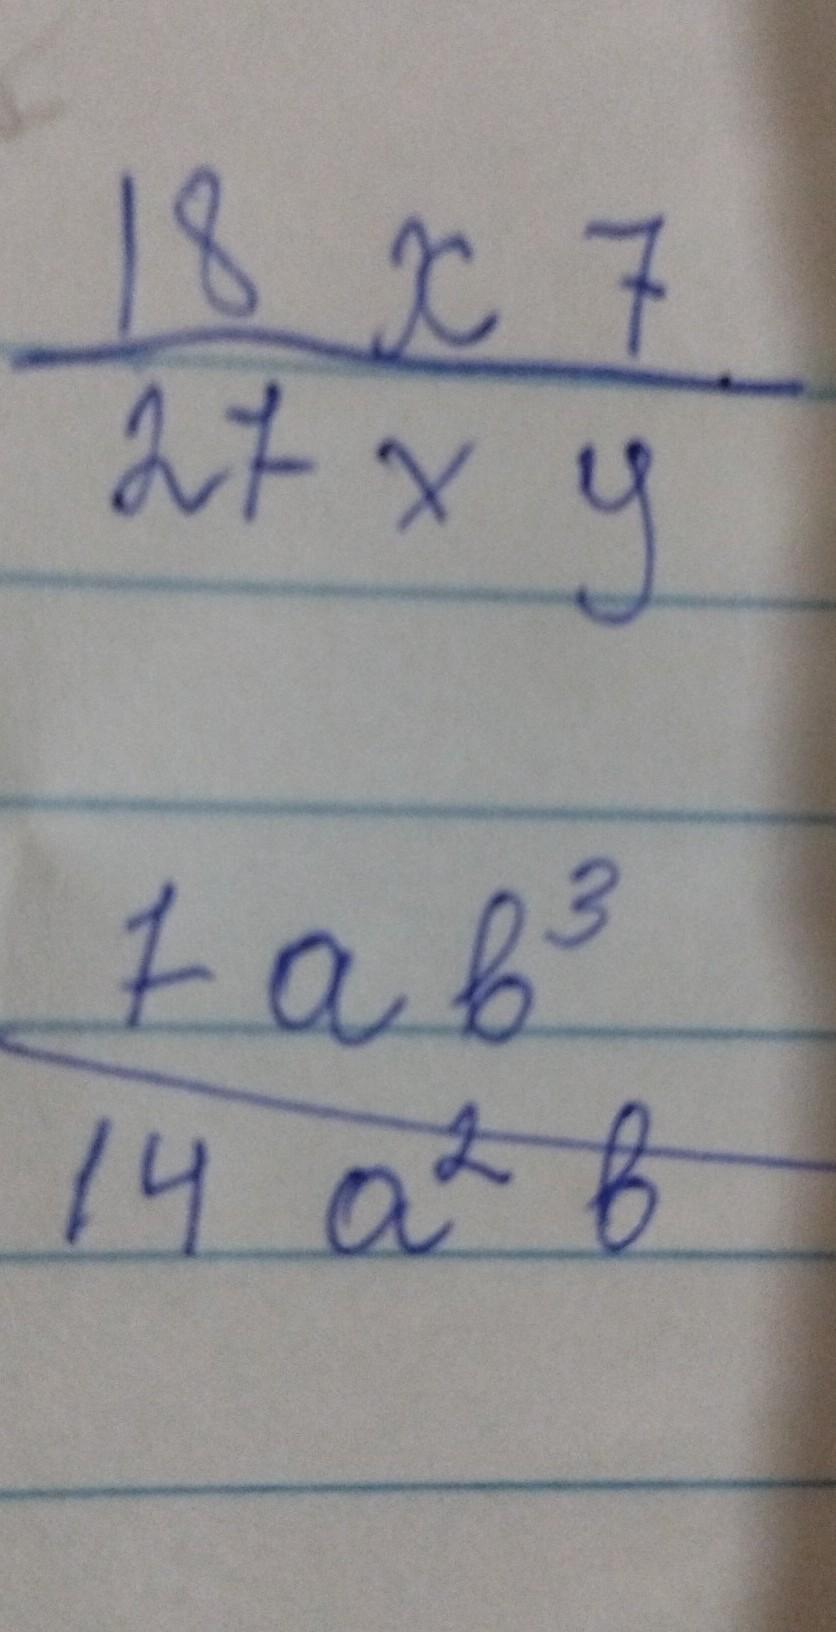 18 x 7
27 x y
7 a b³
14 a² b